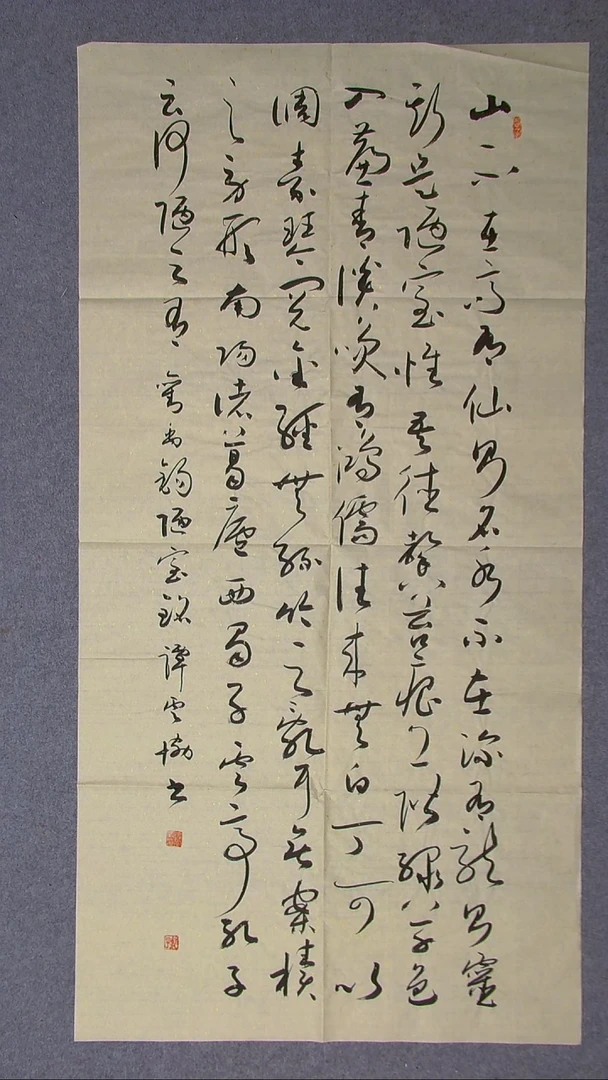 山不在高有仙则名水不在深有龍则靈
斯是陋室惟吾德馨苔痕上階緑草色
入簾青談笑有鴻儒往来無白丁可以
調素琴閲金經無絲竹之亂耳无案牘
之勞形南陽諸葛廬西蜀子雲亭孔子
云何陋之有 劉禹錫陋室銘 譚雲书